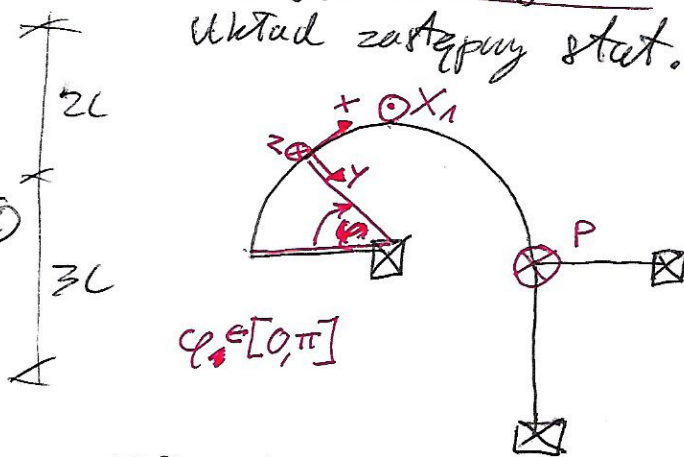 Układ zastępczy stat.
2l
X₁
x
z
y
φ
P
3l
φ ∈ [0, π]